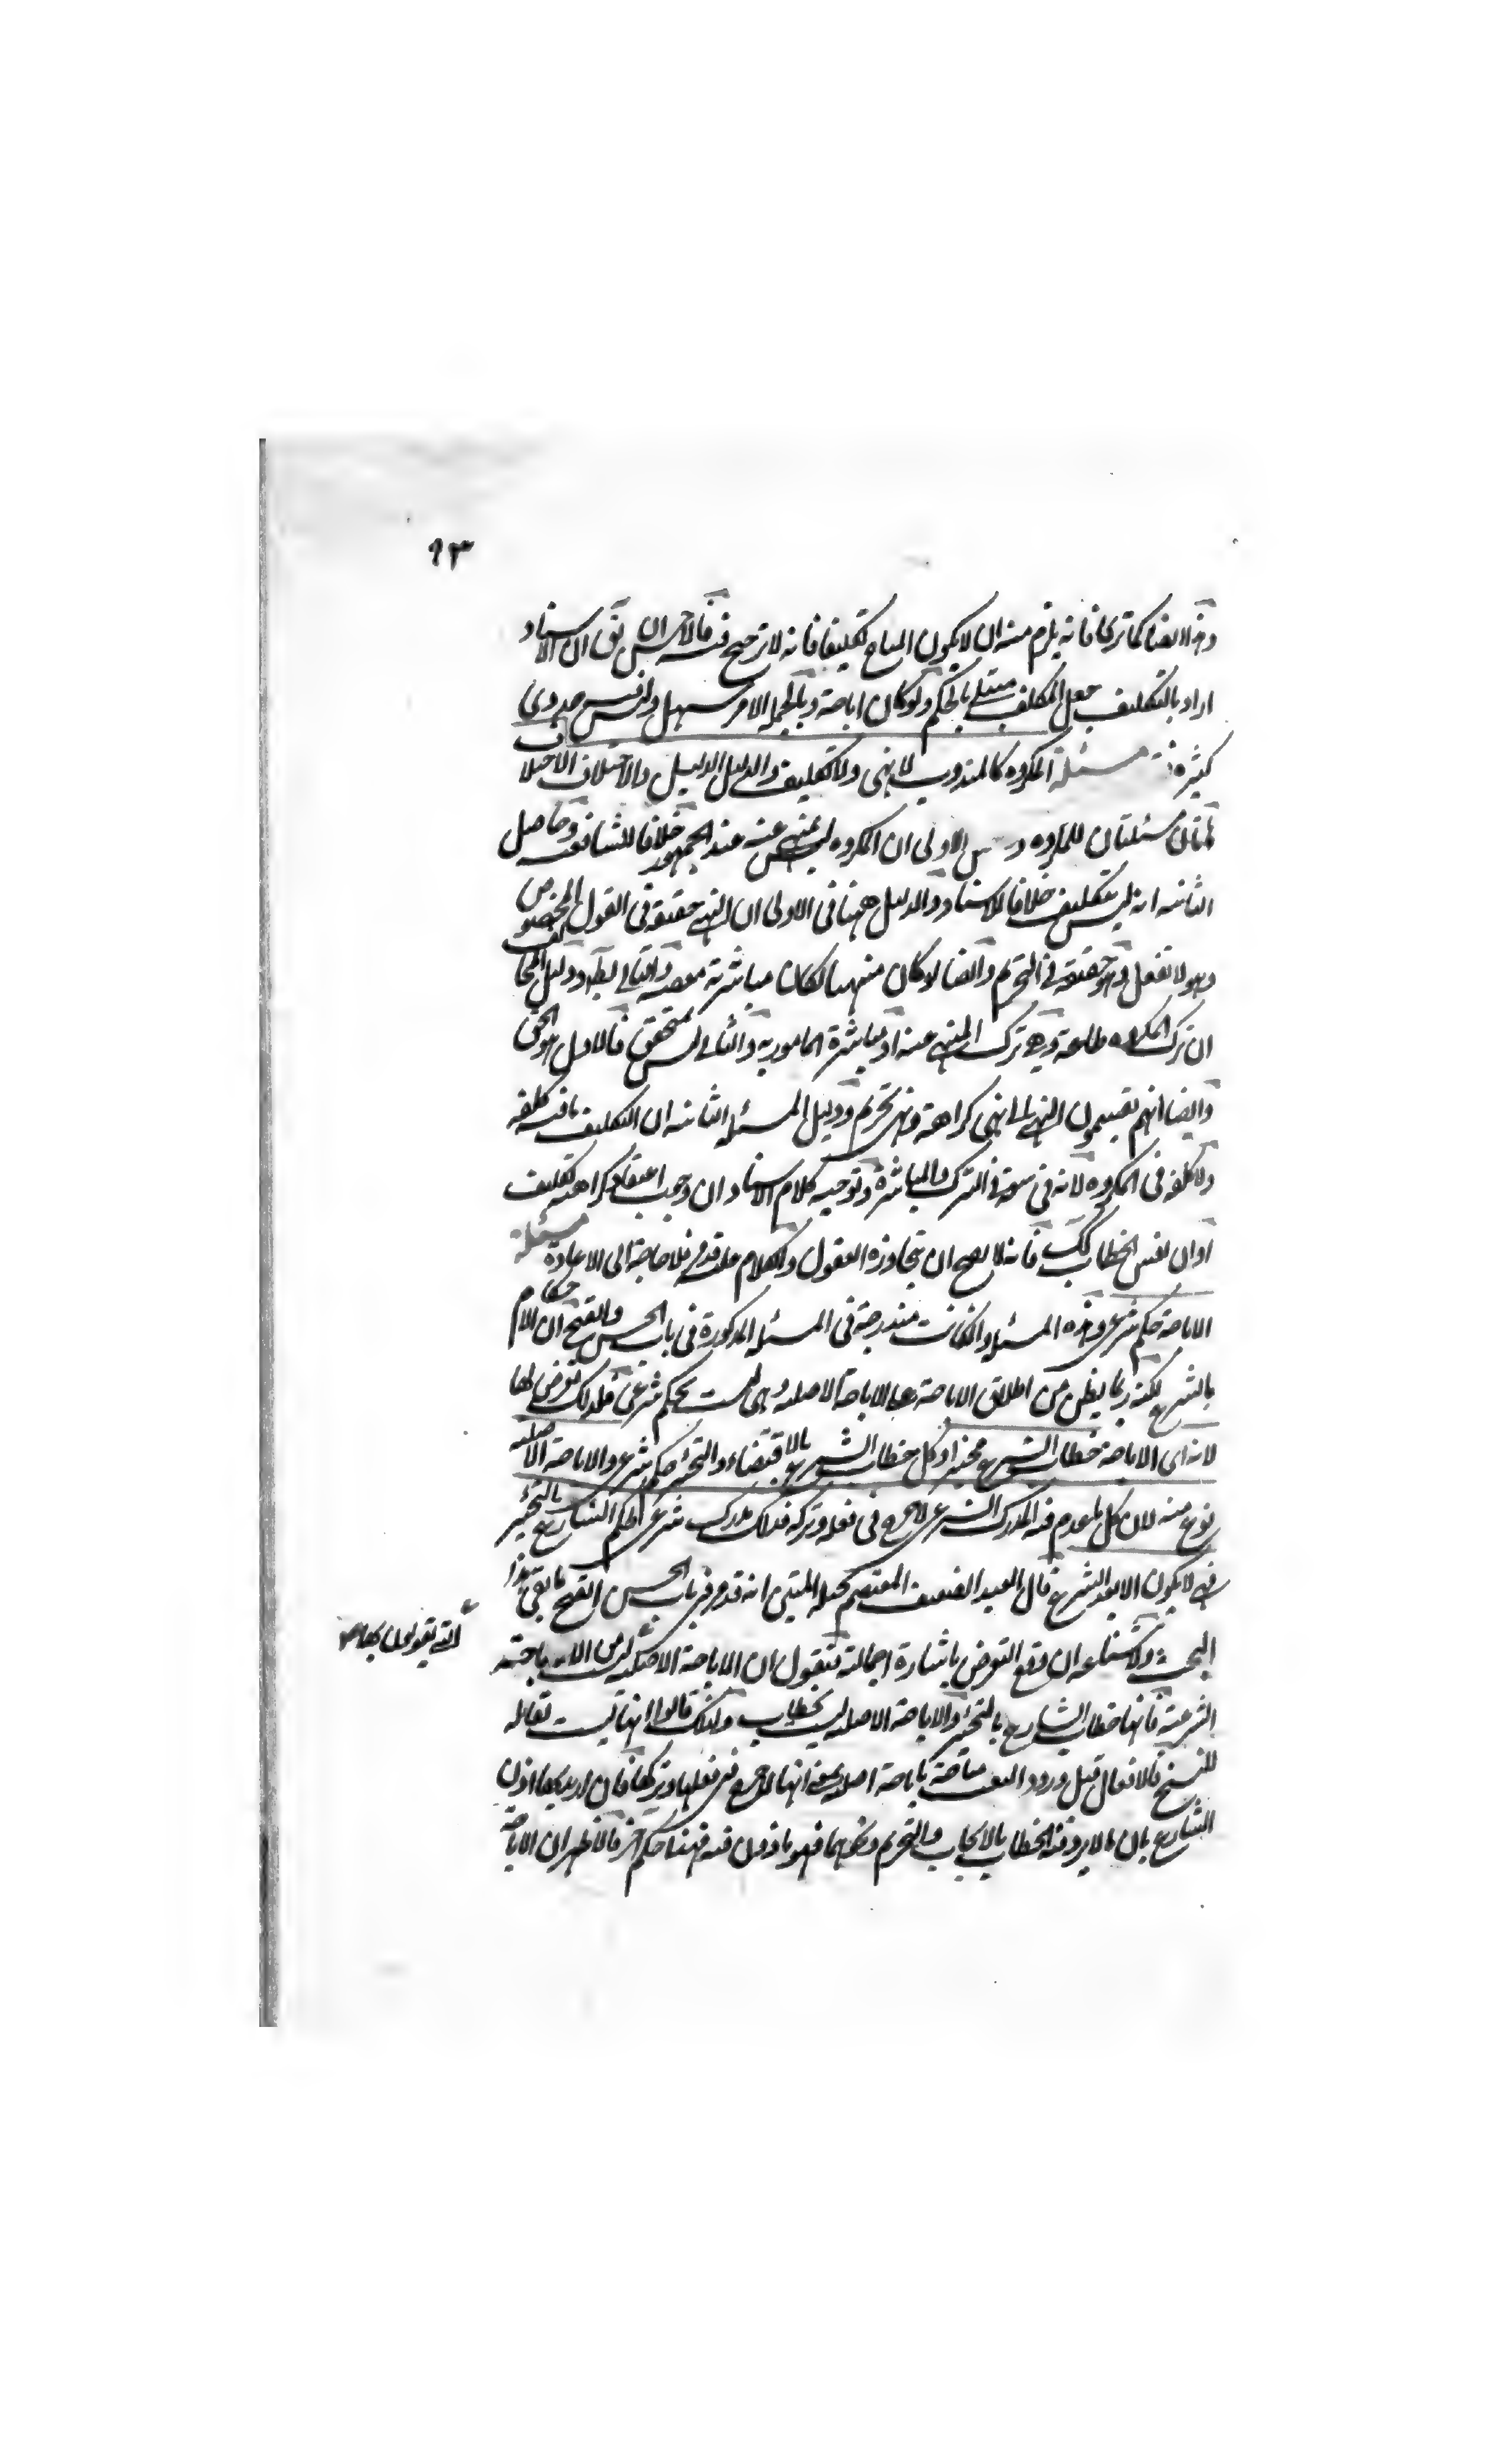 ٩٣
وهذا ايضا كما ترى فانه يلزم منه ان لا يكون المباح تكليفا فانه لا ترجيح فيه فالاحسن ان يق ان الاستاد
اراد بالتكليف جعل المكلف مبتلى بالحكم ولو كان اباحة وبالجملة الامر سهل وليس فيه جدوى
كثيرة مسئلة المكروه كالمندوب لا نهى ولا تكليف والدليل الدليل والاختلاف الاختلاف
هاتان مسئلتان للمكروه الاولى ان المكروه ليس بمنهي عنه عند الجمهور خلافا للشافعية وحاصل
الثانية انه ليس بتكليف خلافا للاستاد والدليل ههنا في الاولى ان النهى حقيقة في القول المخصوص
وهو لا تفعل وهو حقيقة في التحريم وايضا لو كان منهيا لكان مباشرته معصية والتالي بط ودليل المخالف
ان ترك المكروه طاعة وهو ترك المنهي عنه او مباشرة المأمور به والثاني ليس بمتحقق فالاول هو الحق
وايضا انهم يقسمون النهى الى نهى كراهة ونهى تحريم ودليل المسئلة الثانية ان التكليف ما فيه كلفة
ولا كلفة في المكروه لانه في سعة في الترك والمباشرة وتوجيه كلام الاستاد ان وجب اعتقاد كراهته تكليف
او ان نفس الخطاب كك فانه لا يصح ان تجاوزه العقول والكلام عليه قد مر فلا حاجة الى الاعادة مسئلة
الاباحة حكم شرعي وهذه المسئلة وان كانت مندرجة في المسئلة المذكورة في باب الحسن والقبح ان الاحكام
بالشرع لكنه ربما يظن من اطلاق الاباحة على الاباحة الاصلية وهي ليست بحكم شرعي فلذلك تعرض لها
لانه اى الاباحة خطاب الشرع تخييرا وكل خطاب الشرع بالاقتضاء والتخيير حكم شرعي والاباحة الاصلية
نوع منه لان كل ما عدم فيه المدرك الشرعي للاحرج في فعله وتركه فذلك مدرك شرعي لحكم الشارع بالتخيير
فهى لا يكون الا بعد الشرع قال العبد الضعيف المعتصم بحبله المتين انه قد مر في باب الحسن والقبح ما يغني هذا
البحث ولا شناعة ان وقع التعرض باشارة اجمالية فنقول ان الاباحة الاصلية ليس من الاباحة
التي يقولون بها صح
الشرعية فانها خطاب الشارع بالتخيير والاباحة الاصلية ليس بخطاب ولذلك قالوا انها ليست قابلة
للنسخ فالافعال قبل ورود البعث مباحة باباحة اصلية بمعنى انها لا حرج في فعلها وتركها فان اريد بها اذن
الشارع بان ما لا يرد فيه الخطاب بالايجاب والتحريم ونحوهما فهو ماذون فيه فهذا حكم اخر فالاظهر ان الاباحة